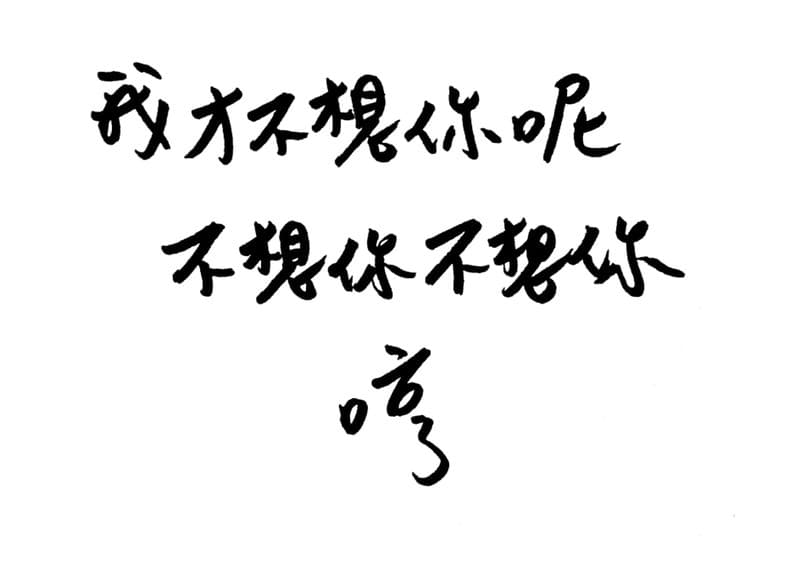 我才不想你呢
不想你不想你
哼